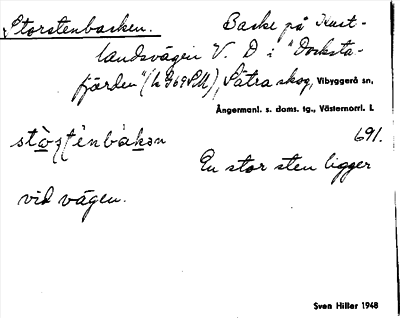 Storstenbacken. Backe på Kust-
landsvägen V. D i "Docksta-
fjärden" (h 969 SM), Sätra skog, Vibyggerå sn,
Ångermanl. s. doms. tg., Västernorrl. l.
691.
En stor sten ligger
vid vägen.
Sven Hiller 1948